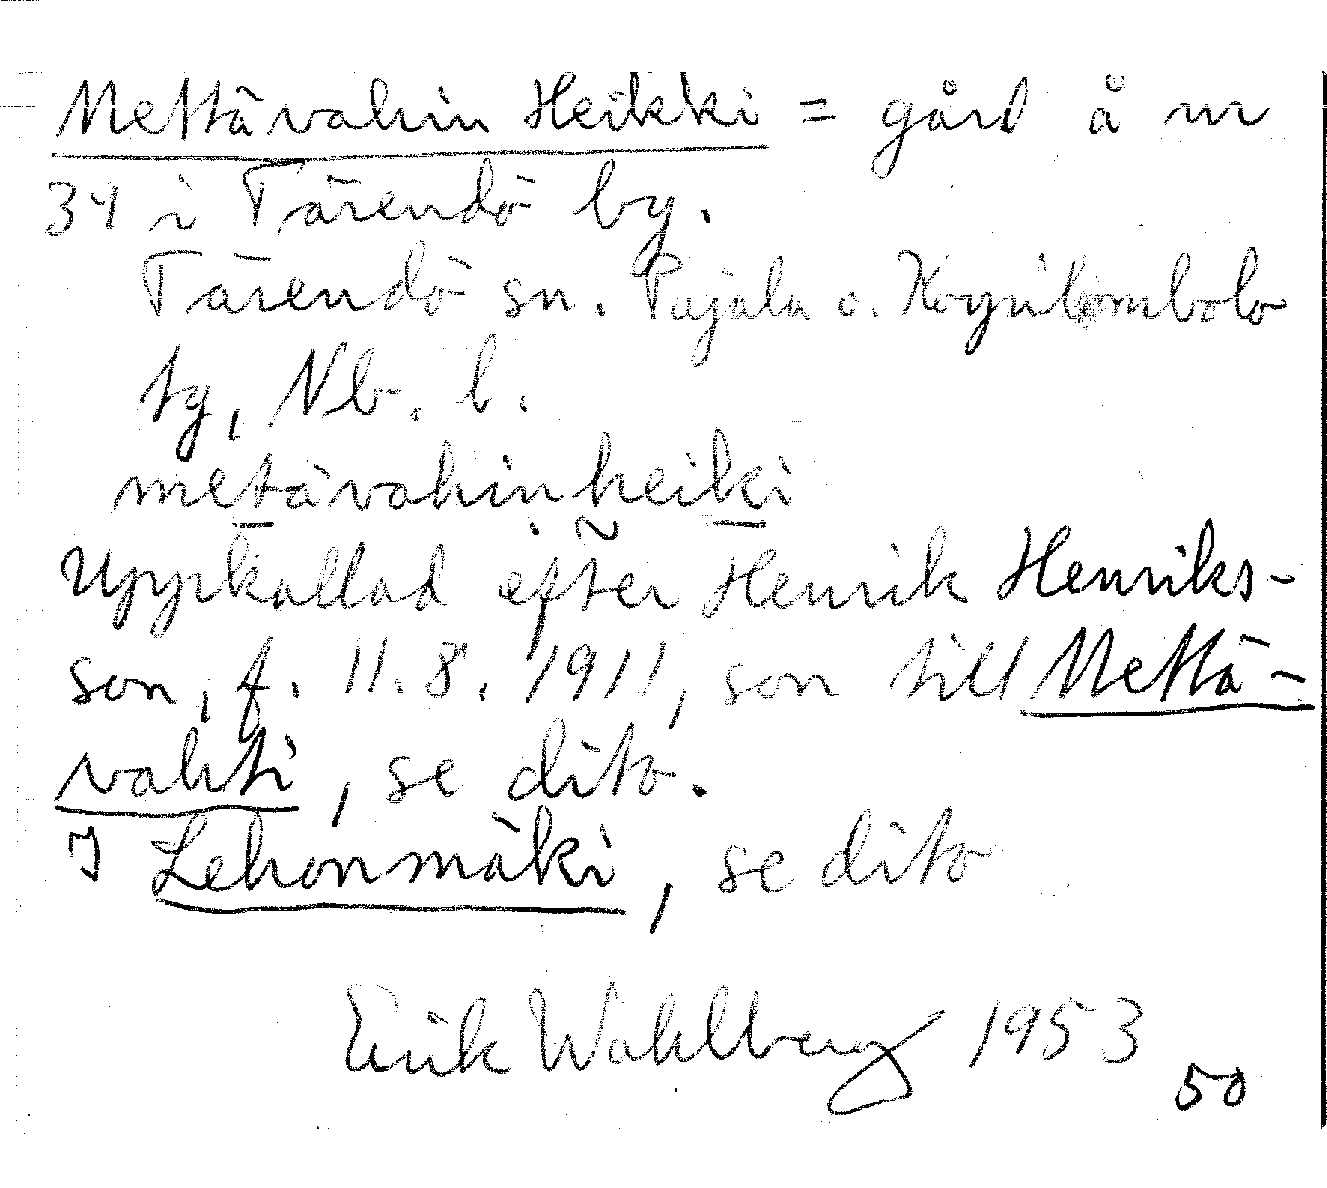 Mettävahin Heikki = gård å nr
34 i Tärendö by.
Tärendö sn. Pajala o. Korpilombolo
tg, Nb. l.
metävahinheiki
Uppkallad efter Henrik Henriks-
son, f. 11.8.1911, son till Mettä-
vahti, se dito.
I Lehonmäki, se dito
Erik Wahlberg 1953
50